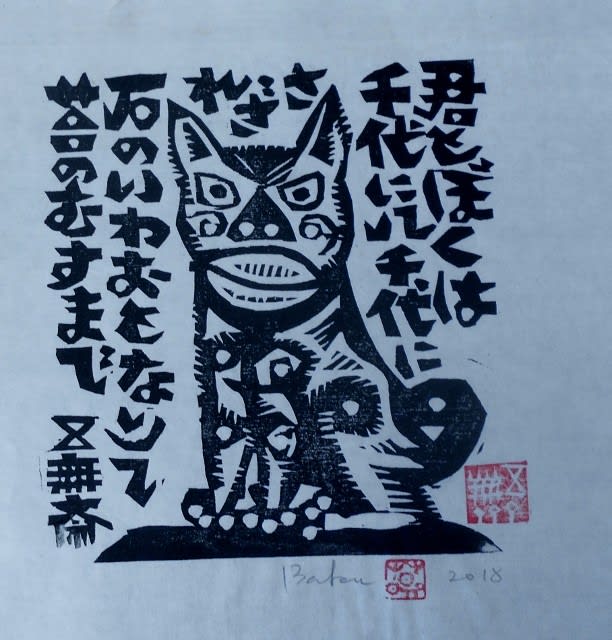 君とぼくは
千代に八千代に
さざれ
石のいわおとなりて
苔のむすまで 五無斎
2018